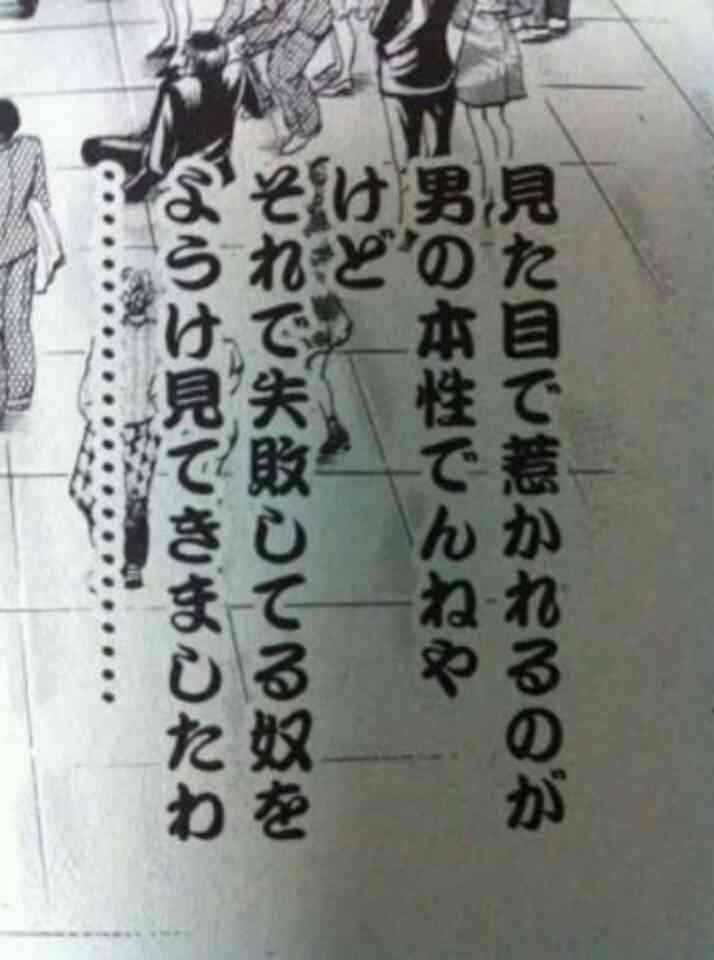 見た目で惹かれるのが
男の本性でんねや
けど
それで失敗してる奴を
ようけ見てきましたわ
………………